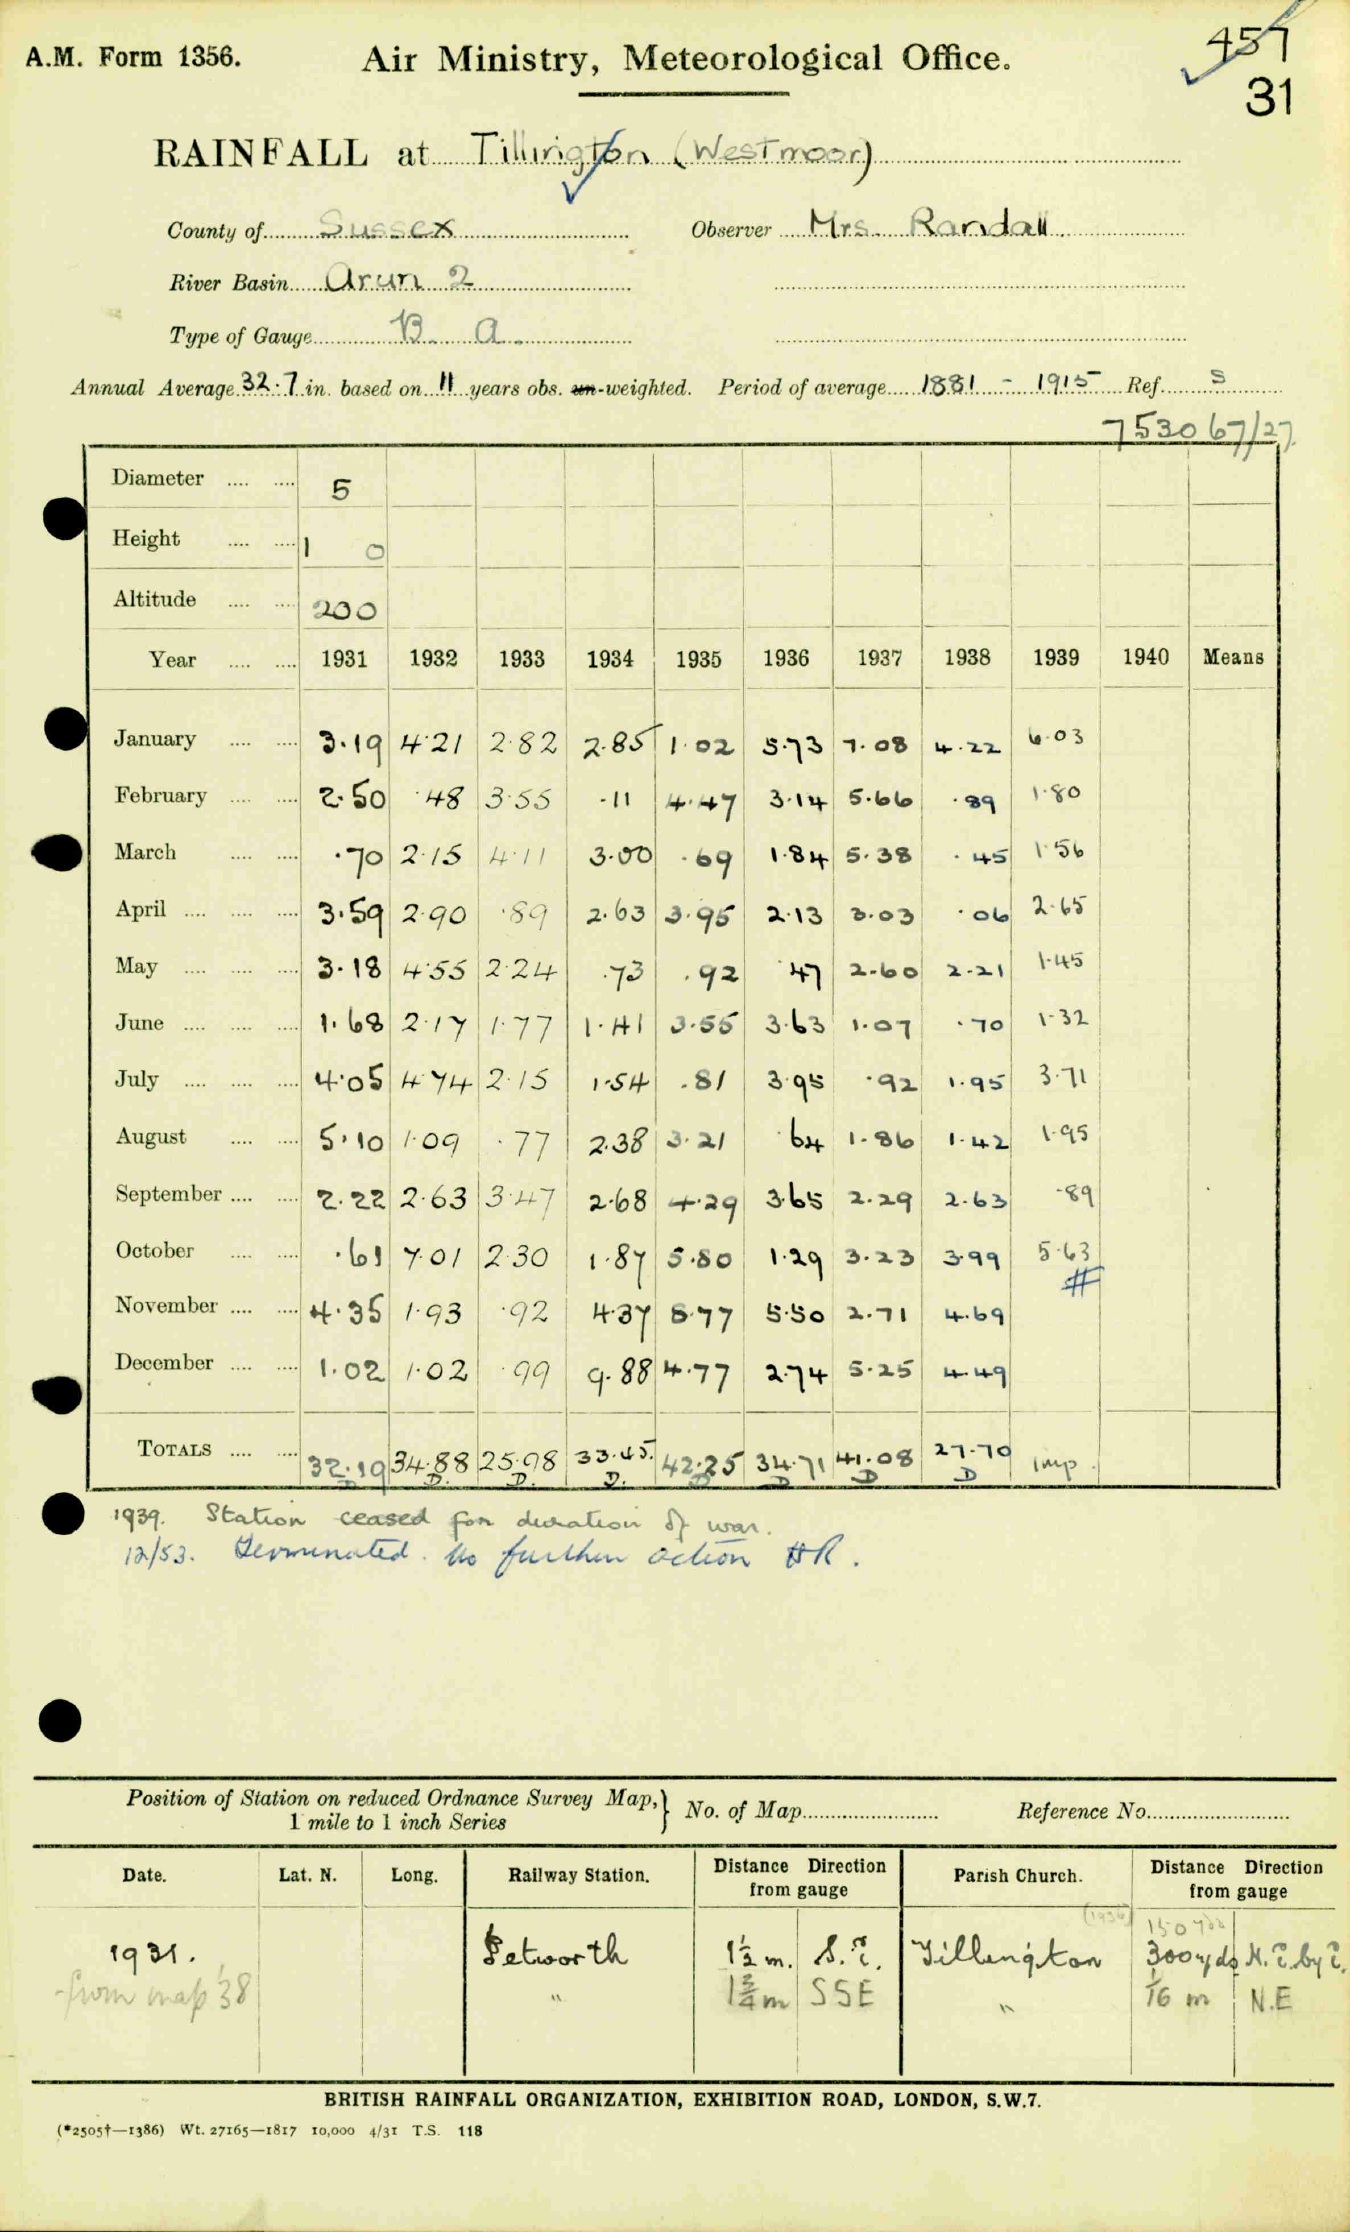 A.M. Form 1356.
Air Ministry, Meteorological Office.
457
31
RAINFALL at Tillington (Westmoor)
County of Sussex Observer Mrs. Randall.
River Basin Arun 2
Type of Gauge B. A.
Annual Average 32.7 in. based on 11 years obs. un-weighted. Period of average 1881 - 1915 Ref. S
753067/27
Diameter 5
Height 1 0
Altitude 200
Year 1931 1932 1933 1934 1935 1936 1937 1938 1939 1940 Means
January 3.19 4.21 2.82 2.85 1.02 5.73 7.08 4.22 6.03
February 2.50 .48 3.55 .11 4.47 3.14 5.66 .89 1.80
March .70 2.15 4.11 3.00 .69 1.84 5.38 .45 1.56
April 3.59 2.90 .89 2.63 3.95 2.13 3.03 .06 2.65
May 3.18 4.55 2.24 .73 .92 .47 2.60 2.21 1.45
June 1.68 2.17 1.77 1.41 3.55 3.63 1.07 .70 1.32
July 4.05 4.74 2.15 1.54 .81 3.95 .92 1.95 3.71
August 5.10 1.09 .77 2.38 3.21 .64 1.86 1.42 1.95
September 2.22 2.63 3.47 2.68 4.29 3.65 2.29 2.63 .89
October .61 7.01 2.30 1.87 5.80 1.29 3.23 3.99 5.63
#
November 4.35 1.93 .92 4.37 8.77 5.50 2.71 4.69
December 1.02 1.02 .99 9.88 4.77 2.74 5.25 4.49
TOTALS 32.19 34.88 25.98 33.45 42.25 34.71 41.08 27.70 imp.
D D. D. D. D D D D
1939. Station ceased for duration of war.
12/53. Terminated. No further action HR.
Position of Station on reduced Ordnance Survey Map, } No. of Map Reference No.
1 mile to 1 inch Series
Date. Lat. N. Long. Railway Station. Distance Direction from gauge Parish Church. Distance Direction from gauge
(1936) 150 yds
1931. Petworth 1½ m. S.E. Tillington 300 yds N.E. by E.
from map '38 " 1¾ m SSE " 1/16 m N.E
BRITISH RAINFALL ORGANIZATION, EXHIBITION ROAD, LONDON, S.W.7.
(*2505†—1386) Wt. 27165—1817 10,000 4/31 T.S. 118